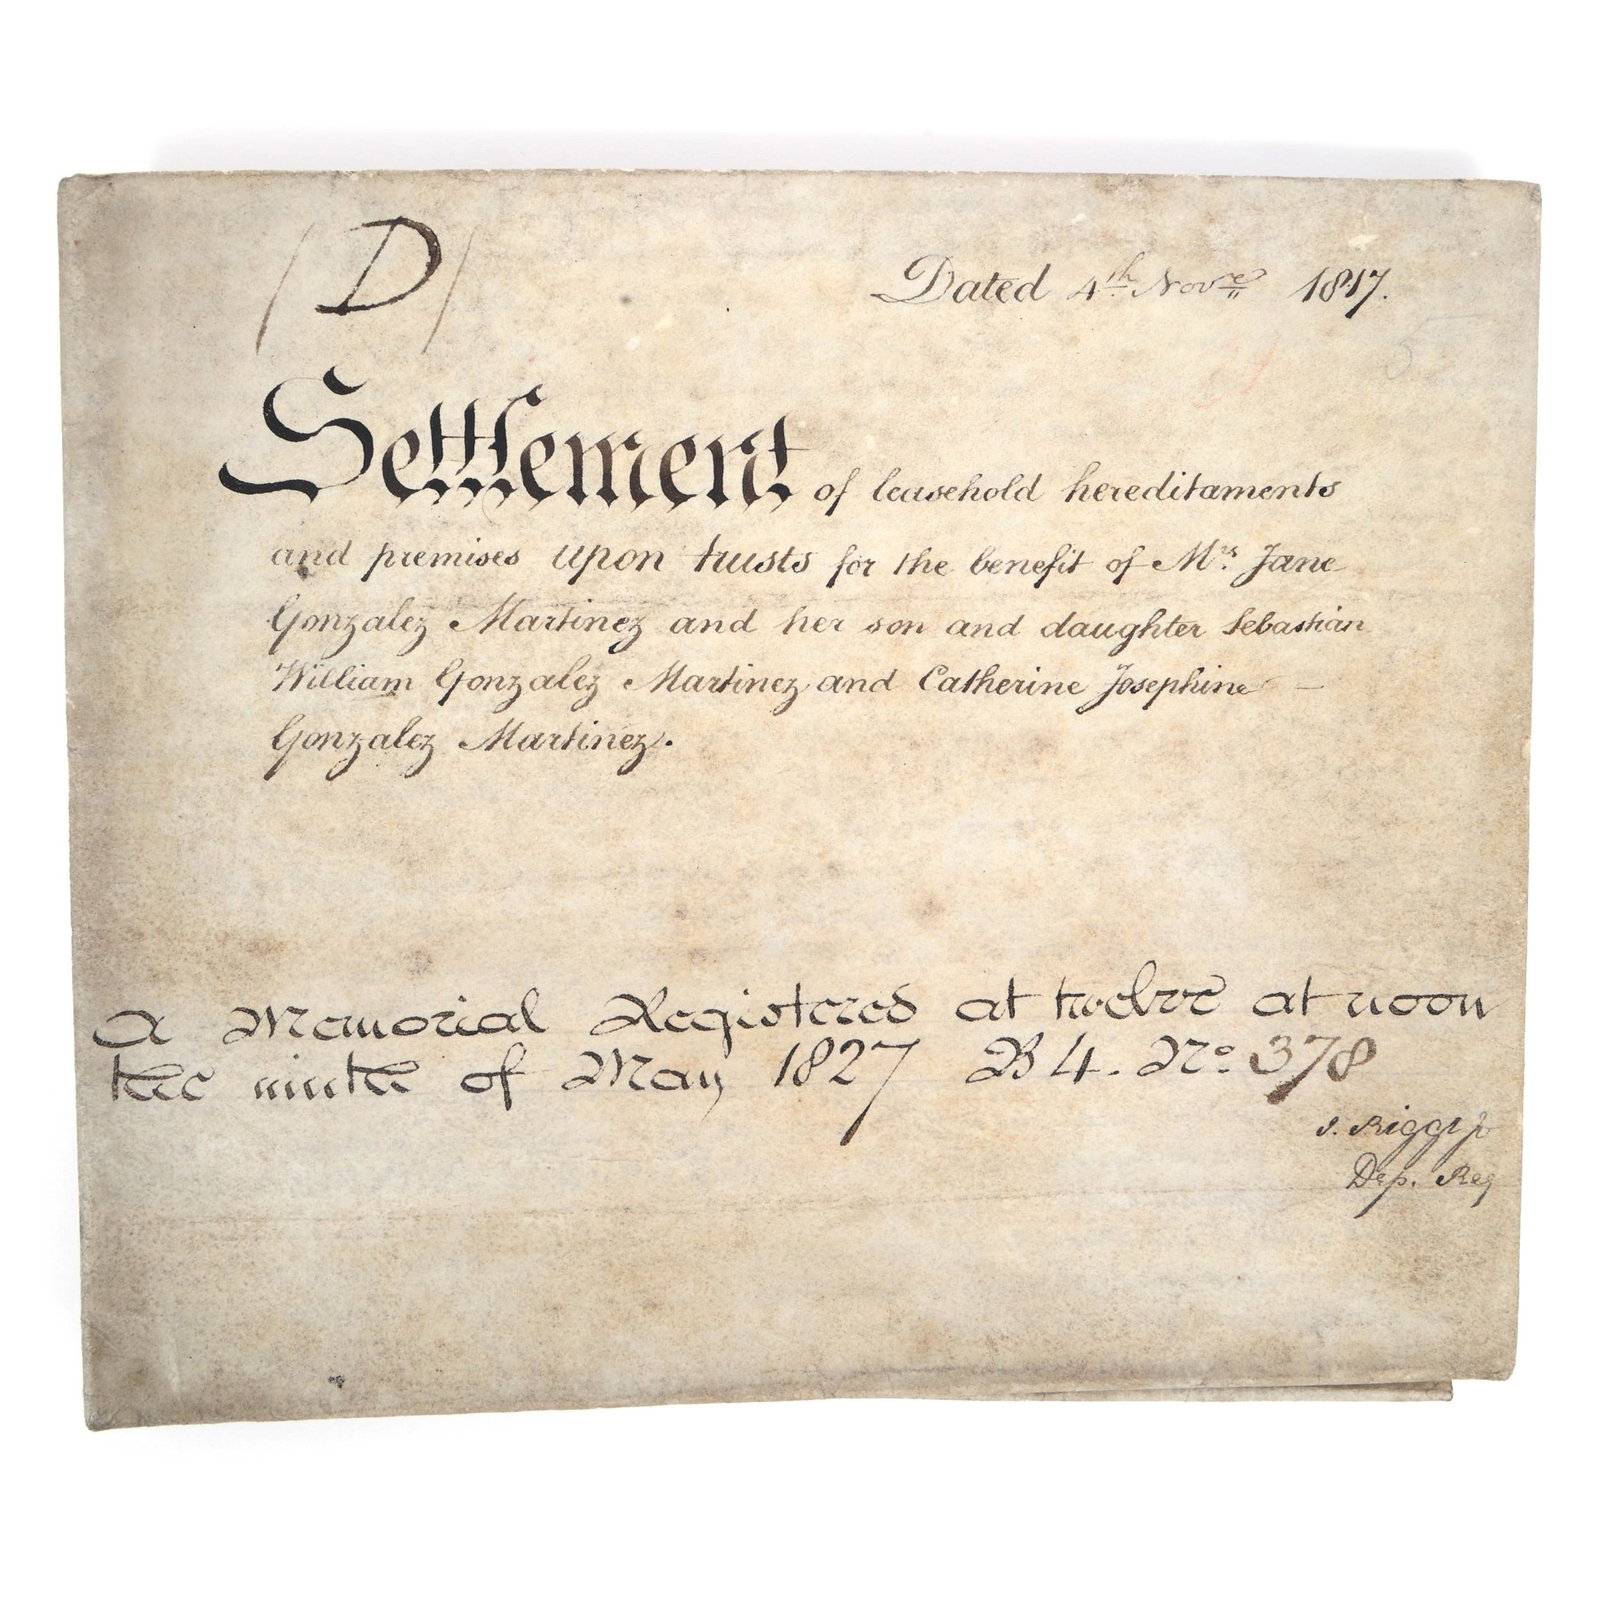 /D/
Dated 4th Novre 1817.
Settlement of leasehold hereditaments
and premises upon trusts for the benefit of Mrs Jane
Gonzalez Martinez and her son and daughter Sebastian
William Gonzalez Martinez and Catherine Josephine —
Gonzalez Martinez.
A Memorial Registered at twelve at noon
the ninth of May 1827 B 4. No 378
J. Riggs
Dep. Reg